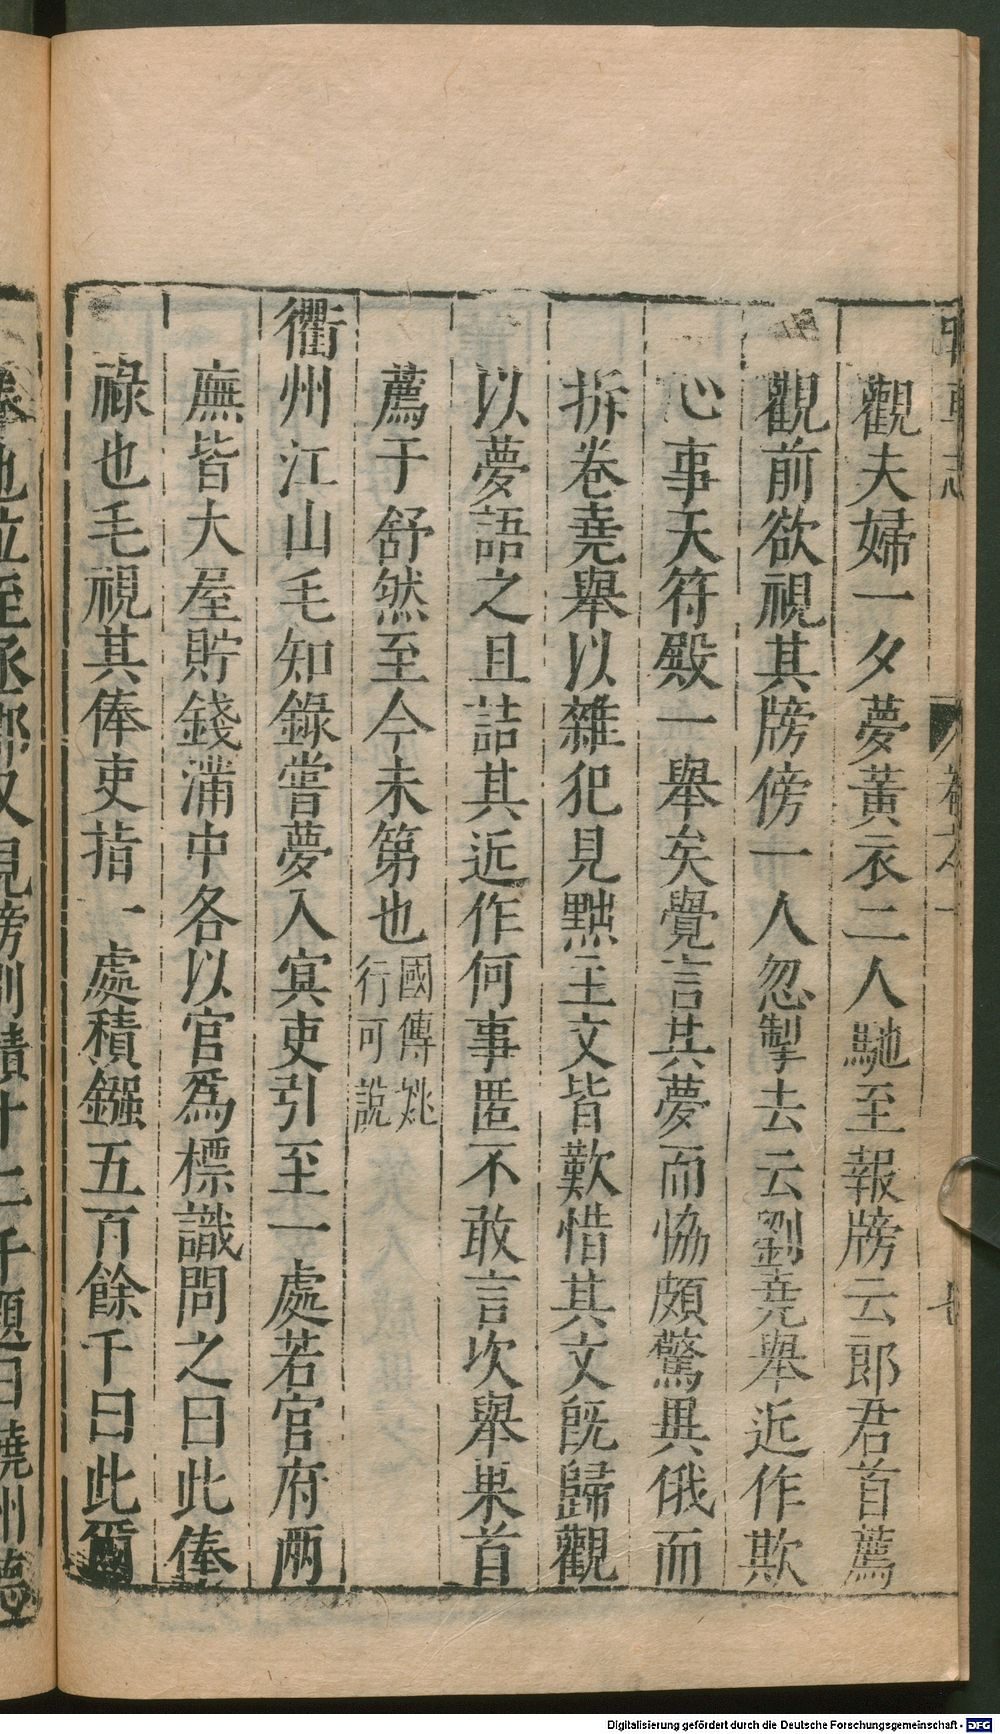 觀夫婦一夕夢黃衣二人馳至報牓云郎君首薦
觀前欲視其牓傍一人忽掣去云劉堯舉近作欺
心事天符殿一舉矣覺言其夢而恊頗驚異俄而
拆卷堯舉以雜犯見黜主文皆歎惜其文旣歸觀
以夢語之且詰其近作何事匿不敢言次舉果首
薦于舒然至今未第也
國傳姚
行可說
衢州江山毛知錄嘗夢入㝠吏引至一處若官府兩
廡皆大屋貯錢滿中各以官爲標識問之曰此俸
祿也毛視其俸吏指一處積鏹五百餘千曰此爾
Digitalisierung gefördert durch die Deutsche Forschungsgemeinschaft - DFG